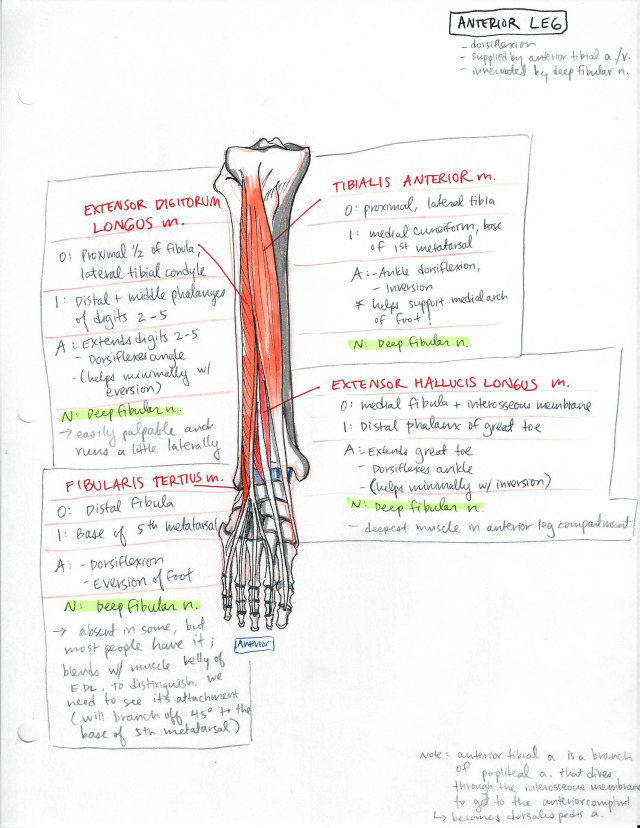 ANTERIOR LEG
- dorsiflexion
- supplied by anterior tibial a./v.
- innervated by deep fibular n.
EXTENSOR DIGITORUM
LONGUS m.
O: Proximal 1/2 of fibula,
lateral tibial condyle
I: Distal + middle phalanges
of digits 2-5
A: - Extends digits 2-5
- Dorsiflexes angle
- (helps minimally w/
eversion)
N: Deep fibular n.
→ easily palpable and
runs a little laterally
TIBIALIS ANTERIOR m.
O: proximal, lateral tibia
I: medial cuneiform, base
of 1st metatarsal
A: - Ankle dorsiflexion,
- Inversion
* helps support medial arch
of foot!
N: Deep fibular n.
EXTENSOR HALLUCIS LONGUS m.
O: medial fibula + interosseous membrane
I: Distal phalanx of great toe
A: - Extends great toe
- Dorsiflexes ankle
- (helps minimally w/ inversion)
N: Deep fibular n.
- deepest muscle in anterior leg compartment
FIBULARIS TERTIUS m.
O: Distal fibula
I: Base of 5th metatarsal
A: - Dorsiflexion
- Eversion of foot
N: Deep fibular n.
→ absent in some, but
most people have it;
blends w/ muscle belly of
EDL. To distinguish, we
need to see it's attachment
(will branch off 45° to the
base of 5th metatarsal)
Anterior
Note: anterior tibial a. is a branch
of popliteal a. that dives
through the interosseous membrane
to go to the anterior comptmt
↳ becomes dorsalis pedis a.